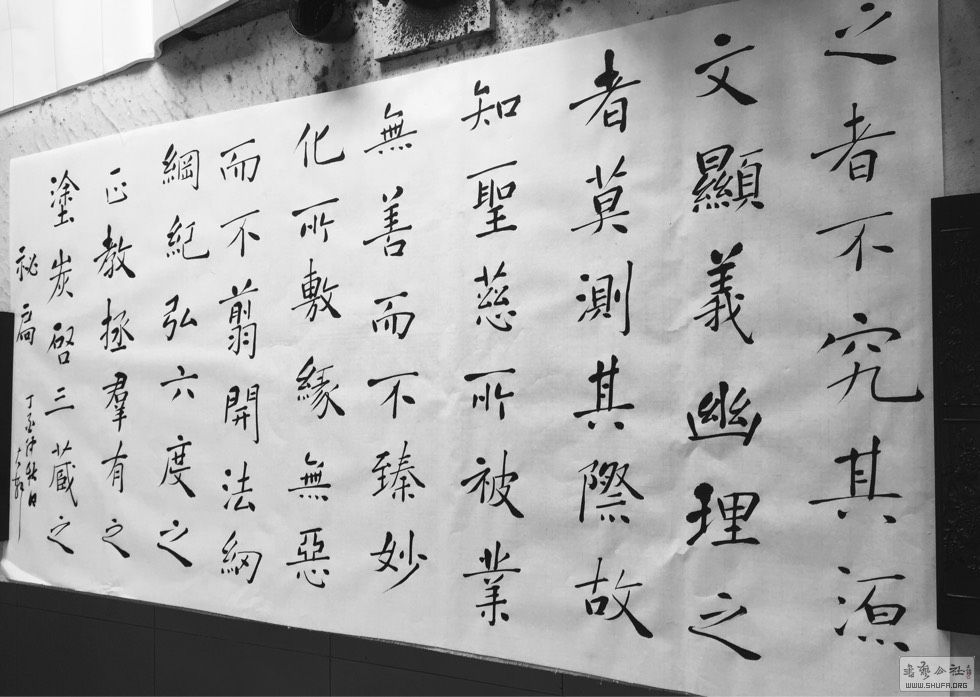 之者不究其源
文顯義幽理之
者莫測其際故
知聖慈所被業
無善而不臻妙
化所敷緣無惡
而不翦開法網
綱紀弘六度之
正教拯羣有之
塗炭啓三藏之
祕扃
仲秋日
書藝公社
WWW.SHUFA.ORG